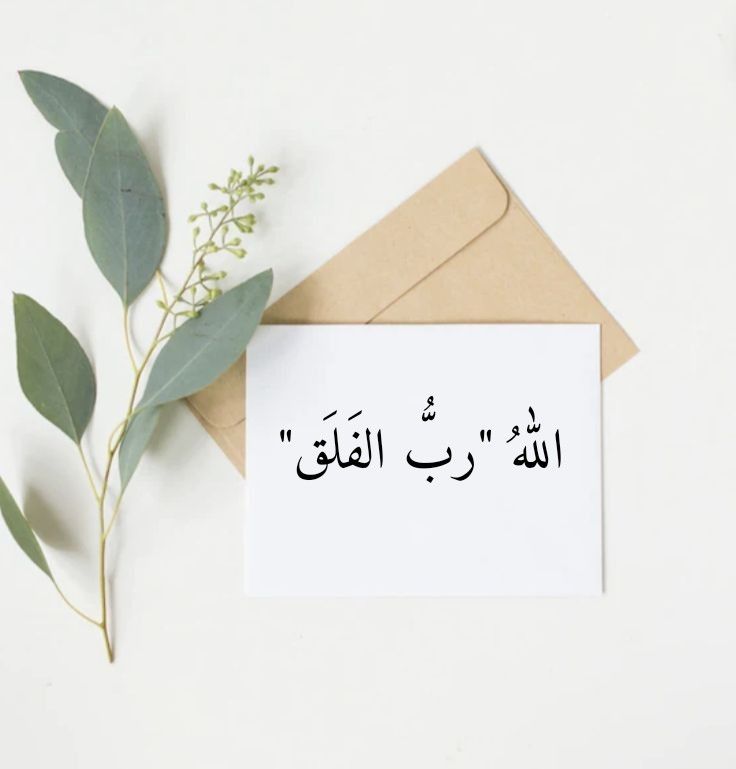 اللهُ "ربُّ الفَلَق"